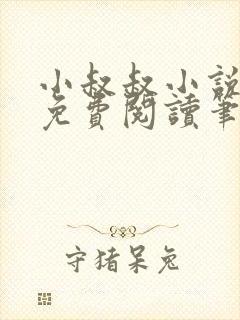 小叔叔小說
免費閱讀筆
守猪呆兔